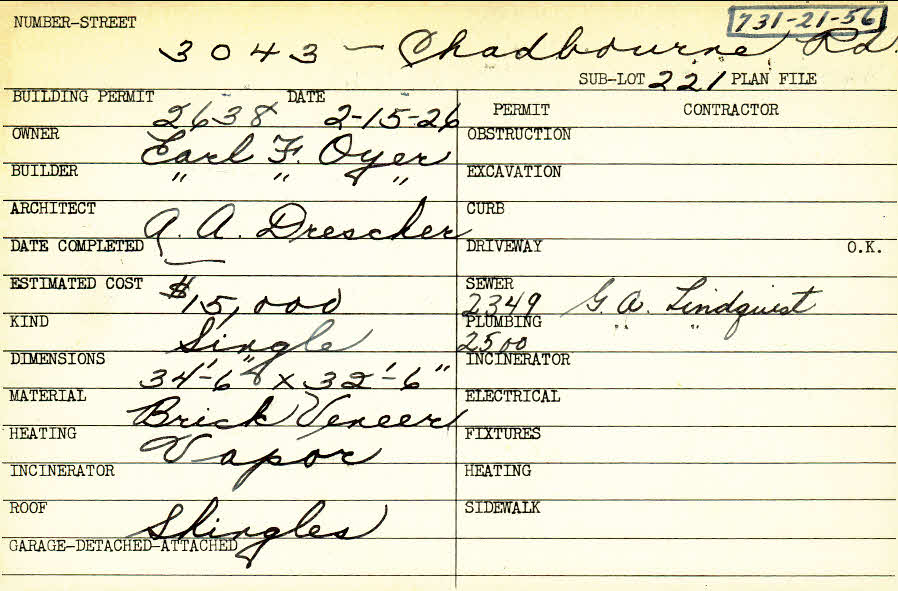 NUMBER-STREET
731-21-56
3043 — Chadbourne Rd.
SUB-LOT 221 PLAN FILE
BUILDING PERMIT 2638 DATE 2-15-26
PERMIT CONTRACTOR
OWNER Earl F. Oyer
OBSTRUCTION
BUILDER " " "
EXCAVATION
ARCHITECT A. A. Drescher
CURB
DATE COMPLETED
DRIVEWAY O.K.
ESTIMATED COST $15,000
SEWER 2349 G. A. Lindquist
KIND Single
PLUMBING 2500 " "
DIMENSIONS 34'-6" x 32'-6"
INCINERATOR
MATERIAL Brick Veneer
ELECTRICAL
HEATING Vapor
FIXTURES
INCINERATOR
HEATING
ROOF Shingles
SIDEWALK
GARAGE-DETACHED-ATTACHED